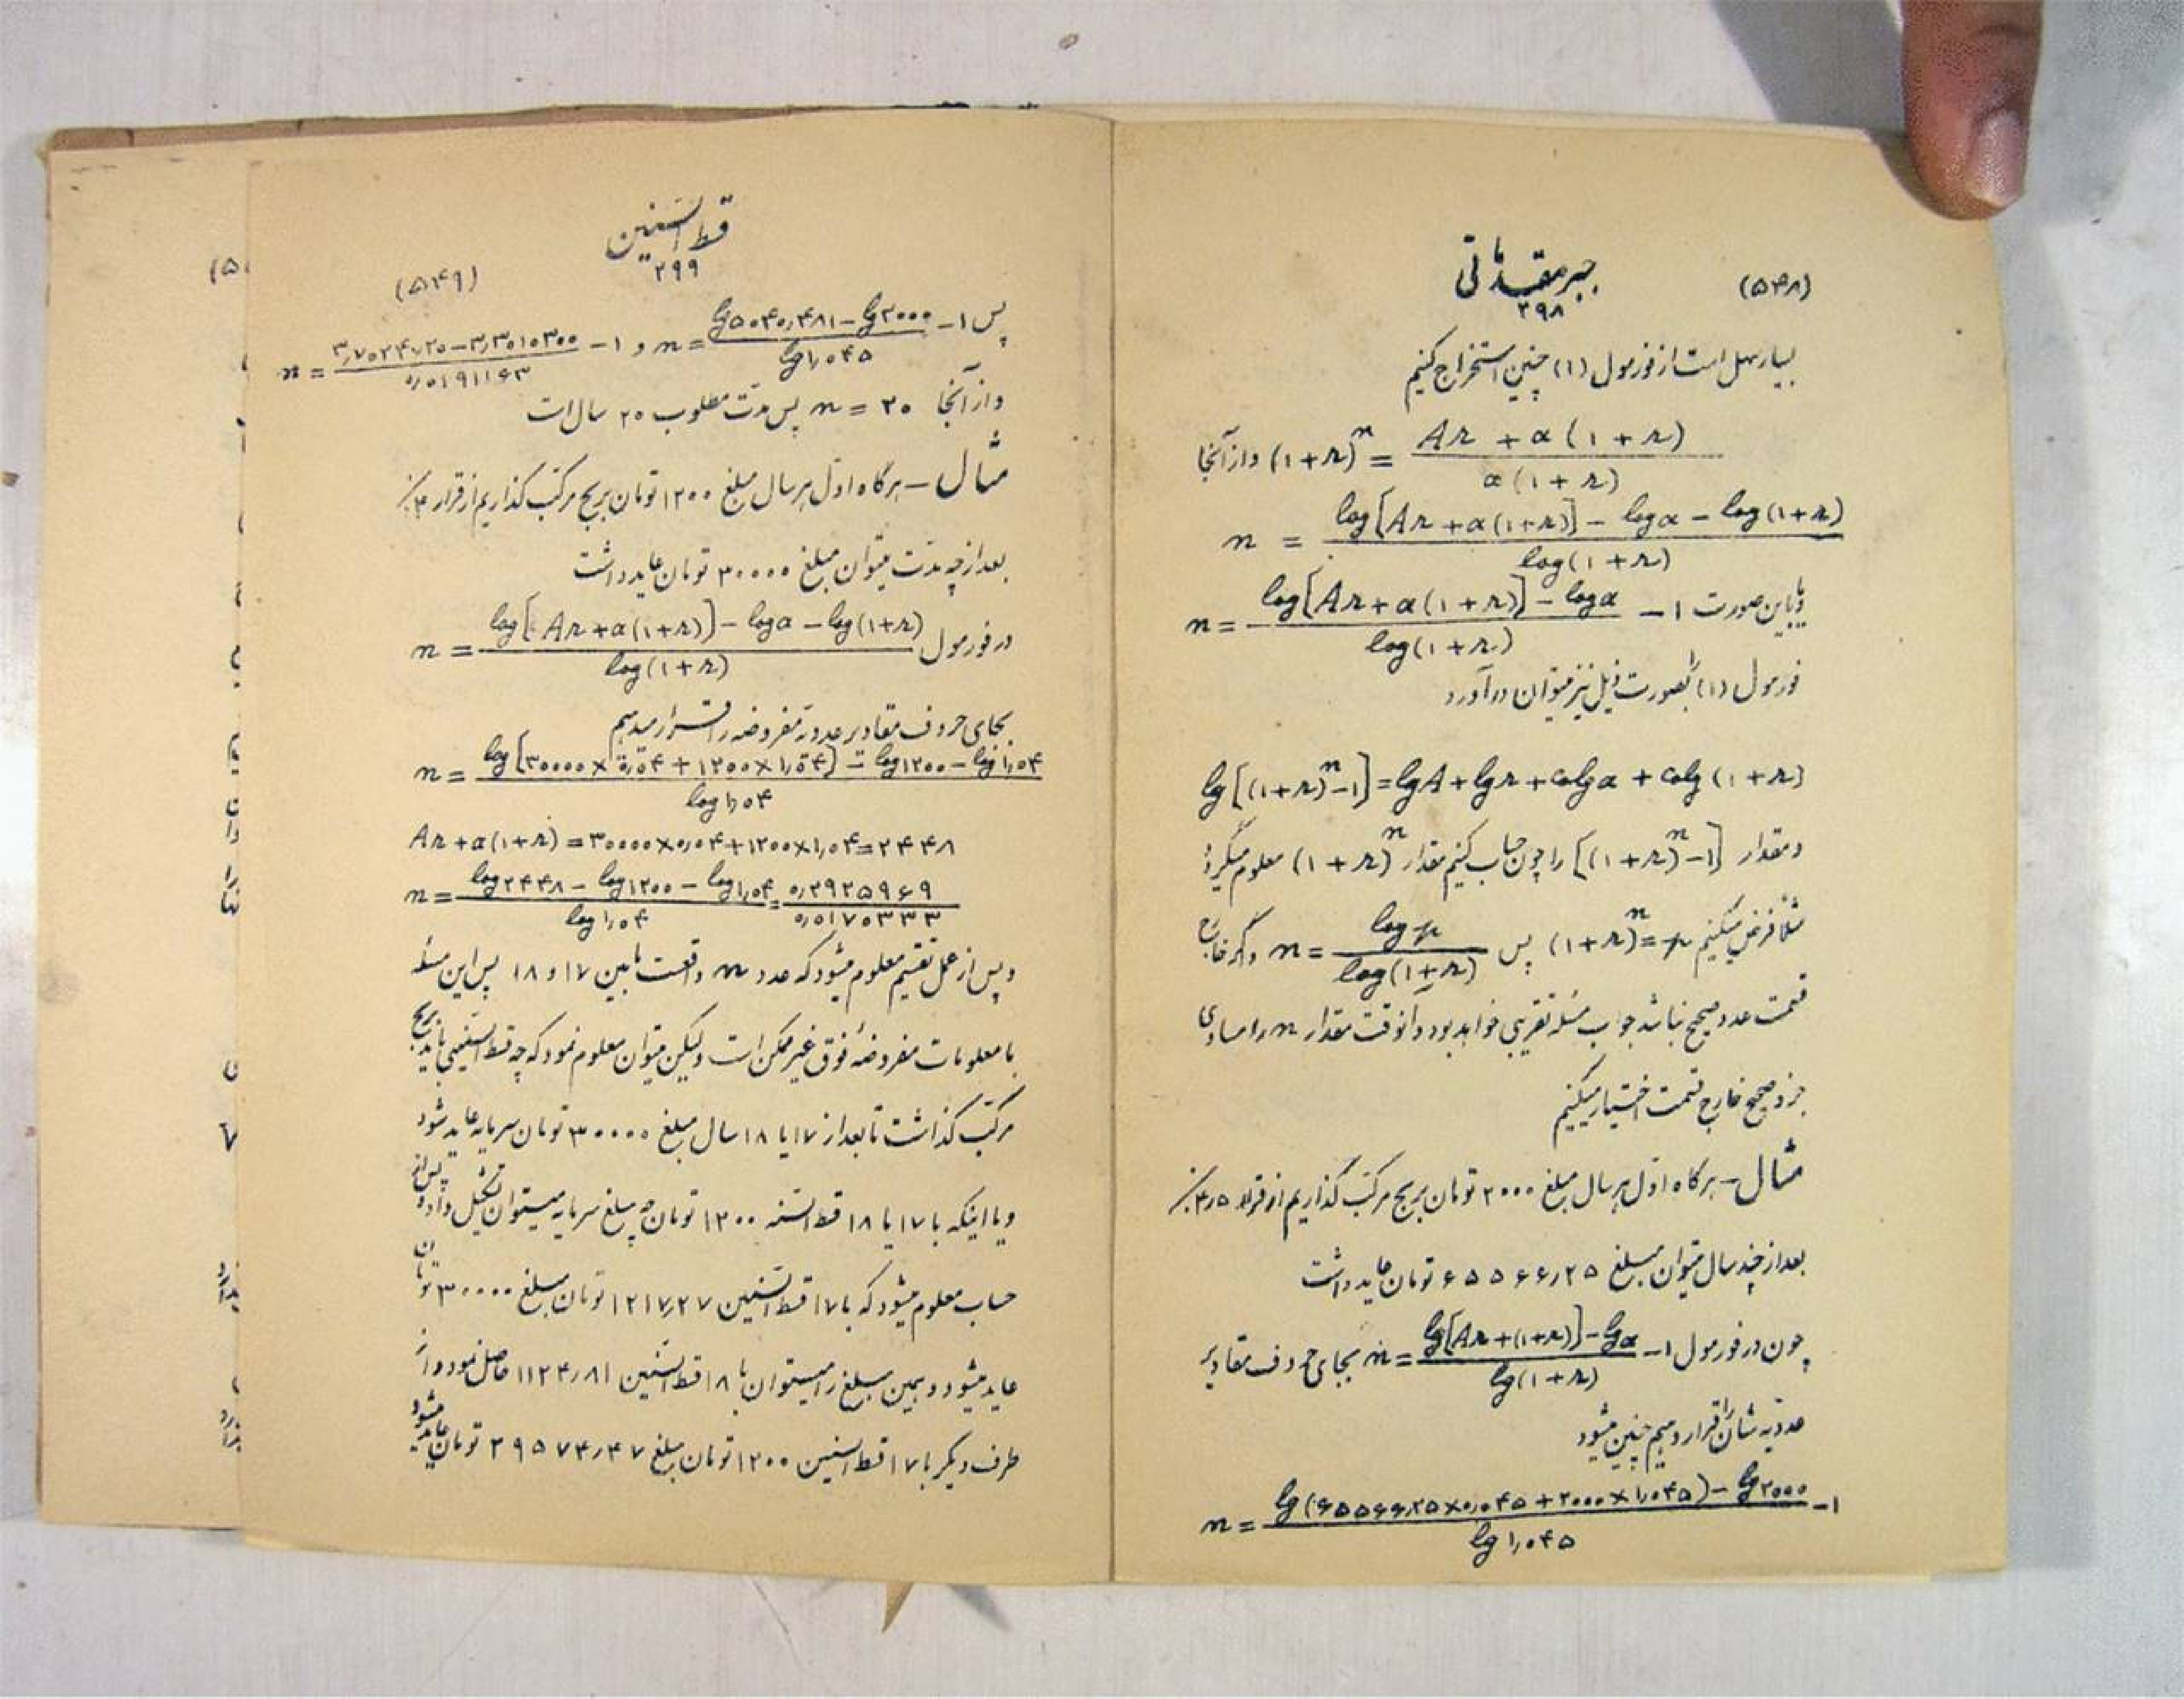 (۵۴۸)
جبر مقدماتی
۲۹۸
بسیار سهل است از فورمول (۱) چنین استخراج کنیم
(1+r)^n = Ar + a(1+r) / a(1+r) و از آنجا
n = log[Ar + a(1+r)] - log a - log(1+r) / log(1+r)
و یا باین صورت n = log[Ar + a(1+r)] - log a / log(1+r) - 1
فورمول (۱) را بصورت ذیل نیز میتوان در آورد
lg[(1+r)^n - 1] = lgA + lgr + colga + colg(1+r)
و مقدار [(1+r)^n - 1] را چون حساب کنیم مقدار (1+r)^n معلوم میگردد
مثلاً فرض میکنیم (1+r)^n = p پس n = log p / log(1+r) و اگر خارج
قسمت عدد صحیح نباشد جواب مسئله تقریبی خواهد بود و آنوقت مقدار n را مساوی
جزء صحیح خارج قسمت اختیار میکنیم
مثال - هر گاه اول هر سال مبلغ ۲۰۰۰ تومان بربح مرکب گذاریم از قرار ۴٫۵٪
بعد از چند سال میتوان مبلغ ۶۵۵۶۶٫۲۵ تومان عاید داشت
چون در فورمول n = lg[Ar + (1+r)] - lg a / lg(1+r) - 1 بجای حروف مقادیر
عددیه شان را قرار دهیم چنین میشود
n = lg(۶۵۵۶۶٫۲۵ × ۰٫۰۴۵ + ۲۰۰۰ × ۱٫۰۴۵) - lg ۲۰۰۰ / lg ۱٫۰۴۵ - ۱
قسط السنین
۲۹۹
(۵۴۹)
پس n = lg ۵۰۴۰٫۴۸۱ - lg ۲۰۰۰ / lg ۱٫۰۴۵ - ۱ و n = ۳٫۷۰۲۴۷۲۰ - ۳٫۳۰۱۰۳۰۰ / ۰٫۰۱۹۱۱۶۳ - ۱
و از آنجا n = ۲۰ پس مدت مطلوب ۲۰ سال است
مثال - هر گاه اول هر سال مبلغ ۱۲۰۰ تومان بربح مرکب گذاریم از قرار ۴٪
بعد از چه مدت میتوان مبلغ ۳۰۰۰۰ تومان عاید داشت
در فورمول n = log[Ar + a(1+r)] - log a - log(1+r) / log(1+r)
بجای حروف مقادیر عددیه مفروضه را قرار میدهیم
n = log[۳۰۰۰۰ × ۰٫۰۴ + ۱۲۰۰ × ۱٫۰۴] - log ۱۲۰۰ - log ۱٫۰۴ / log ۱٫۰۴
Ar + a(1+r) = ۳۰۰۰۰ × ۰٫۰۴ + ۱۲۰۰ × ۱٫۰۴ = ۲۴۴۸
n = log ۲۴۴۸ - log ۱۲۰۰ - log ۱٫۰۴ / log ۱٫۰۴ = ۰٫۲۹۲۵۹۶۹ / ۰٫۰۱۷۰۳۳۳
و پس از عمل تقسیم معلوم میشود که عدد n واقعست مابین ۱۷ و ۱۸ پس این مسئله
با معلومات مفروضهٔ فوق غیر ممکن است ولیکن میتوان معلوم نمود که چه قسط السنینی باید بربح
مرکب گذاشت تا بعد از ۱۷ یا ۱۸ سال مبلغ ۳۰۰۰۰ تومان سرمایه عاید شود
و یا اینکه با ۱۷ یا ۱۸ قسط السنه ۱۲۰۰ تومان چه مبلغ سرمایه میتوان تشکیل داد و پس از
حساب معلوم میشود که با ۱۷ قسط السنین ۱۲۱۷٫۲۷ تومان مبلغ ۳۰۰۰۰ تومان
عاید میشود و همین مبلغ را میتوان با ۱۸ قسط السنین ۱۱۲۴٫۸۱ حاصل نمود و از
طرف دیگر با ۱۷ قسط السنین ۱۲۰۰ تومان مبلغ ۲۹۵۷۴٫۴۷ تومان عاید میشود